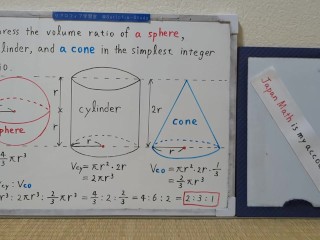 ress the volume ratio of a sphere,
linder, and a cone in the simplest integer
io.
r
r
sphere
cylinder
r
2r
cone
r
4/3 πr³
Vcy = πr²·2r
= 2πr³
Vco = πr²·2r·1/3
= 2/3 πr³
Vcy : Vco
πr³ : 2πr³ : 2/3 πr³ = 4/3 : 2 : 2/3 = 4:6:2 = 2:3:1
Japan Math is my accou